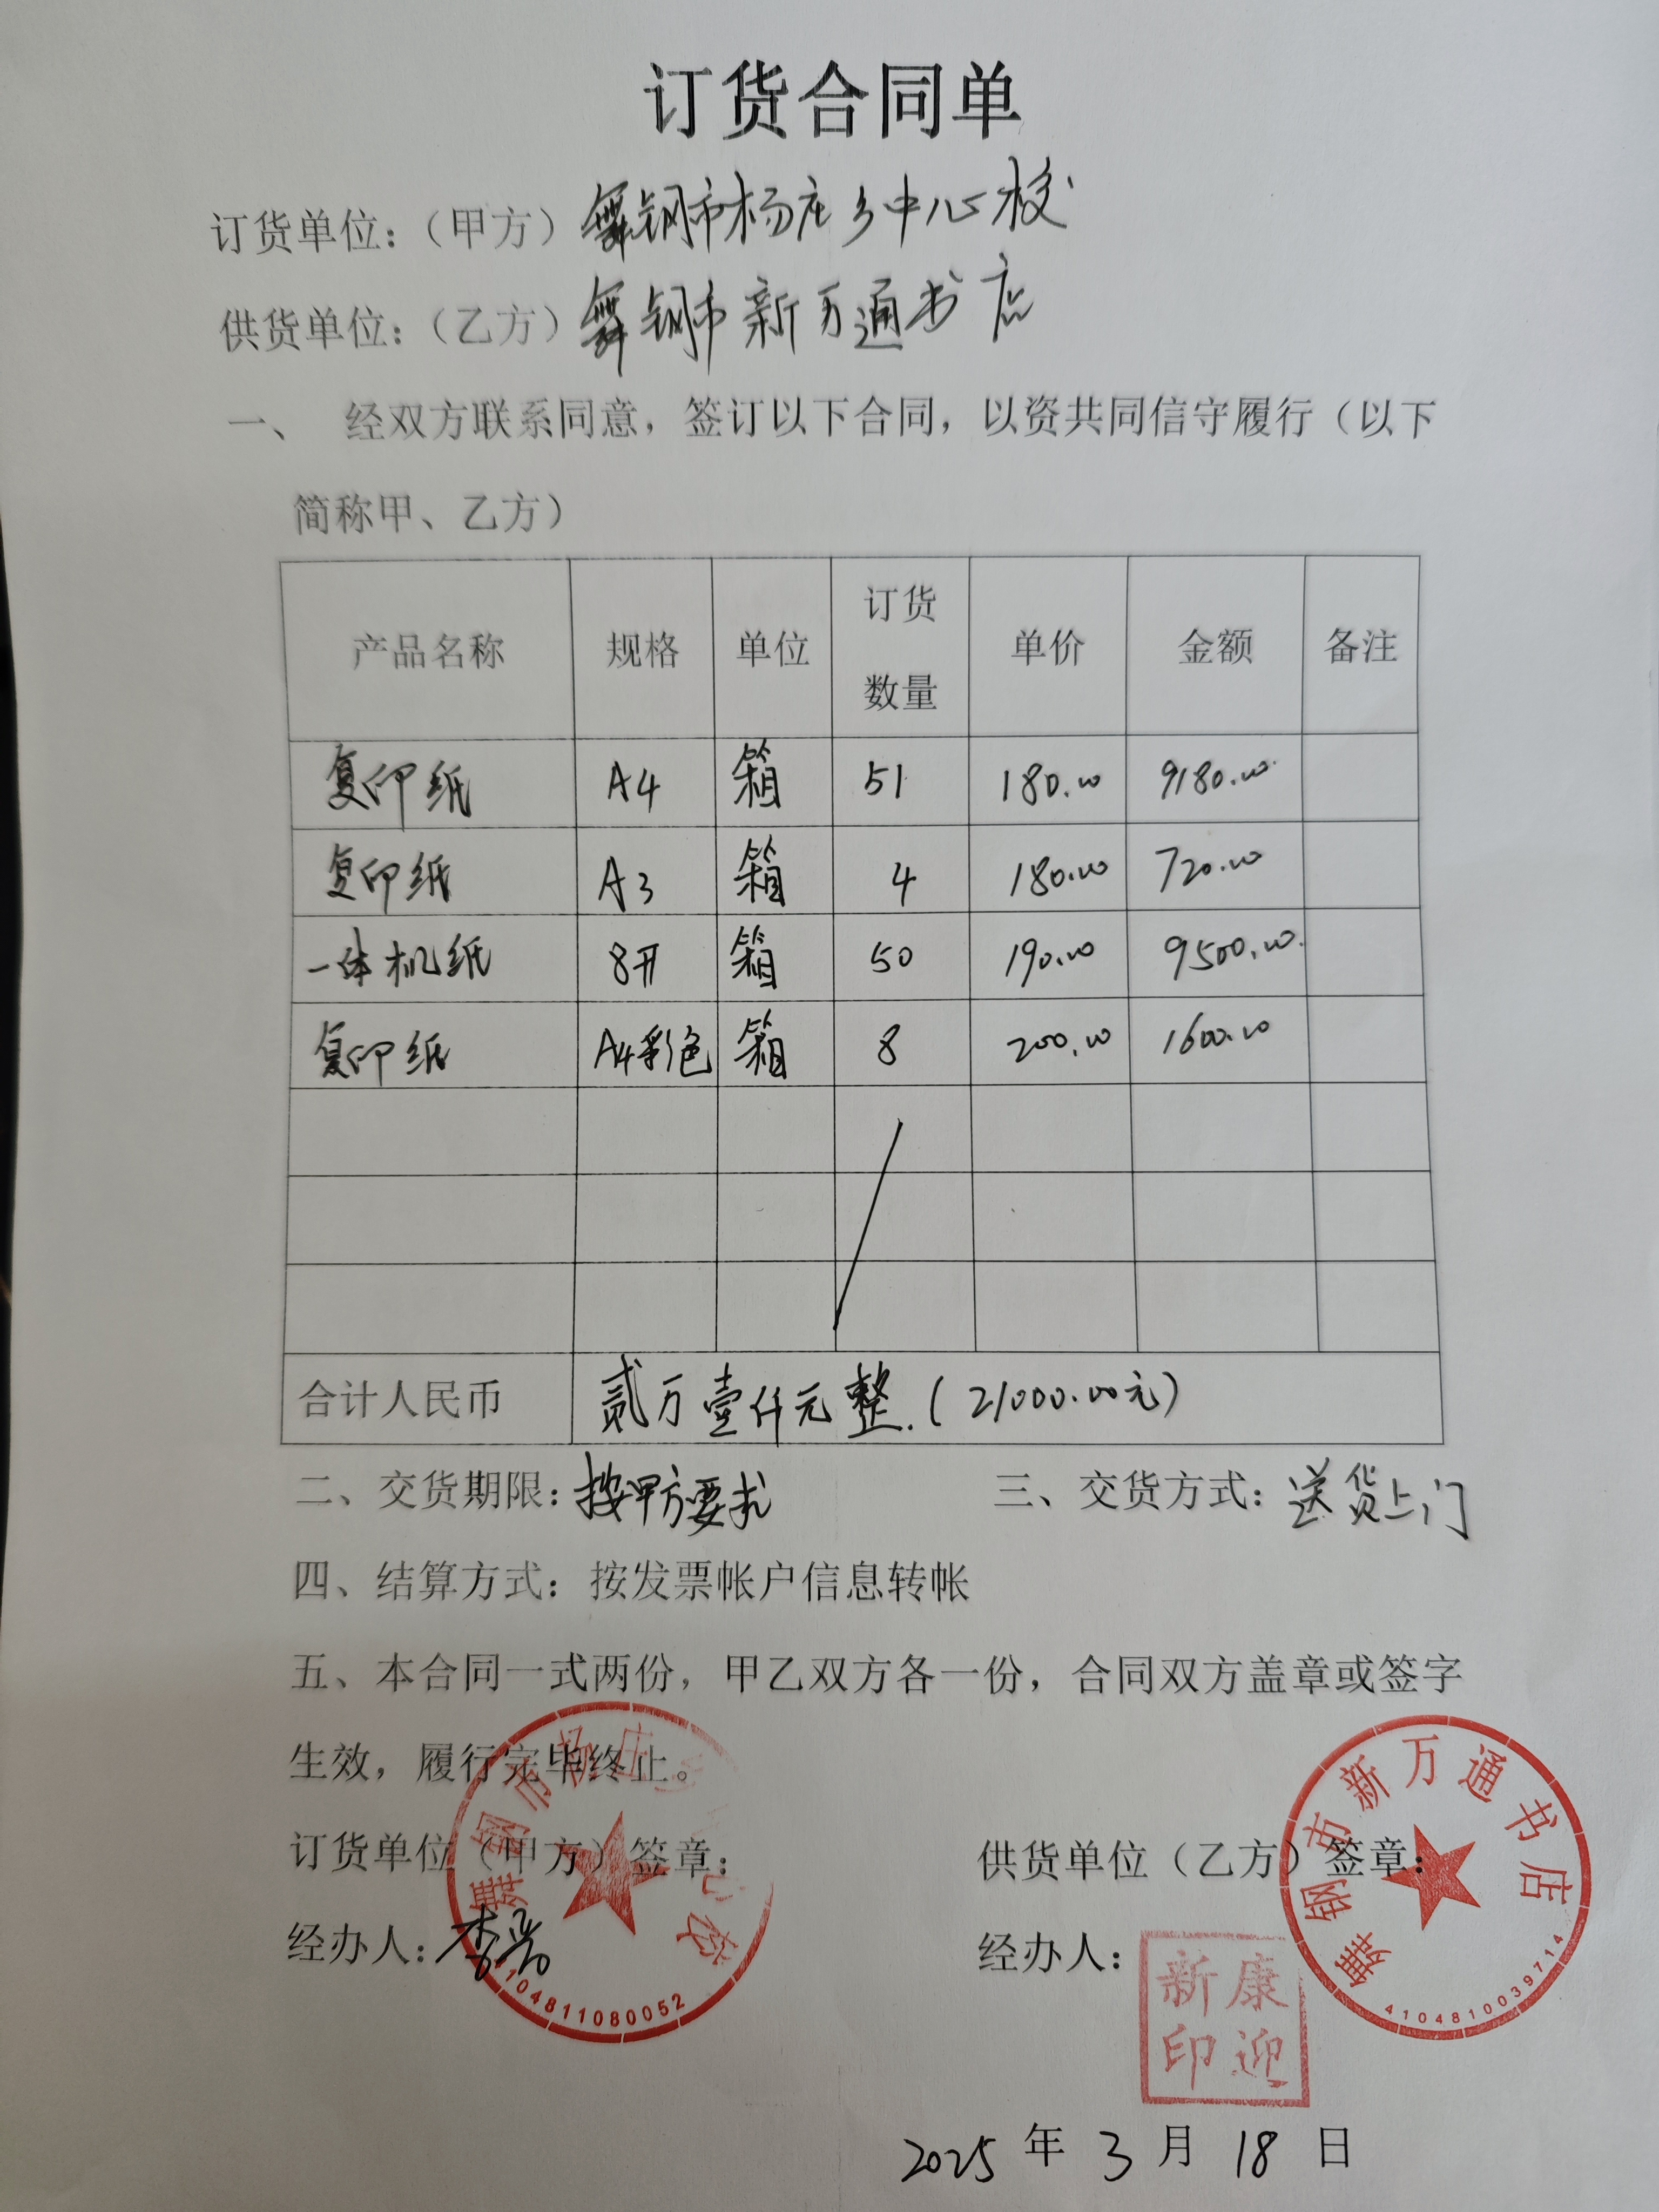 订货合同单
订货单位：（甲方）舞钢市杨庄乡中心校
供货单位：（乙方）舞钢市新万通书店
一、 经双方联系同意，签订以下合同，以资共同信守履行（以下
简称甲、乙方）
产品名称 规格 单位 订货数量 单价 金额 备注
复印纸 A4 箱 51 180.00 9180.00
复印纸 A3 箱 4 180.00 720.00
一体机纸 8开 箱 50 190.00 9500.00
复印纸 A4彩色 箱 8 200.00 1600.00
合计人民币 贰万壹仟元整.(21000.00元)
二、交货期限：按甲方要求 三、交货方式：送货上门
四、结算方式：按发票帐户信息转帐
五、本合同一式两份，甲乙双方各一份，合同双方盖章或签字
生效，履行完毕终止。
订货单位（甲方）签章： 供货单位（乙方）签章：
经办人： 经办人：
舞钢市杨庄乡中心校
4104811080052
舞钢市新万通书店
4104810039714
康迎新印
2025年3月18日